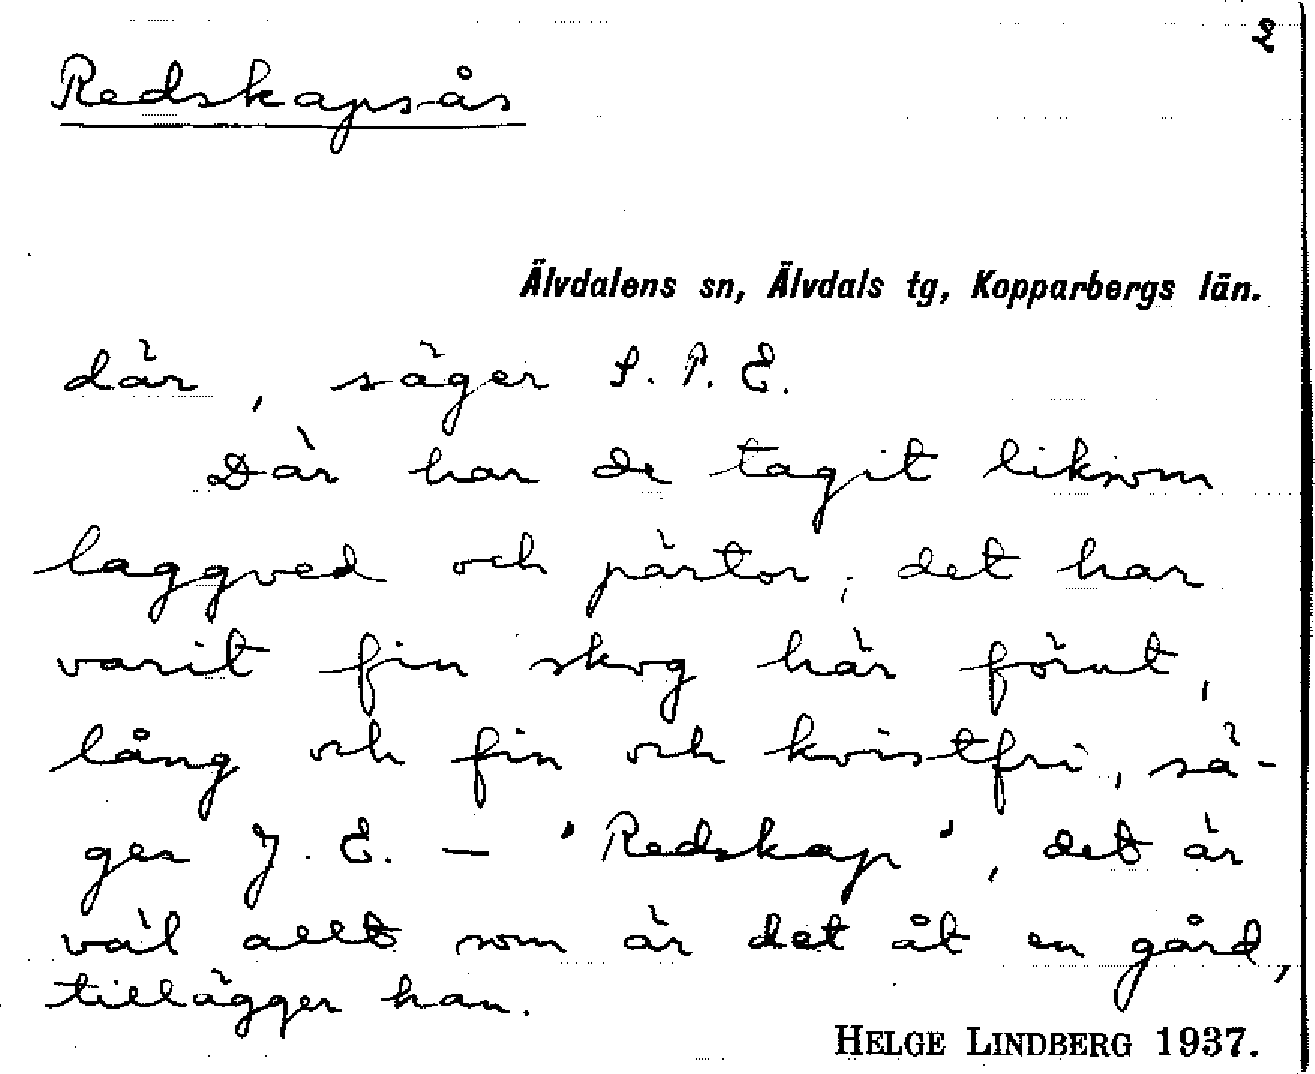 2
Redskapsås
Älvdalens sn, Älvdals tg, Kopparbergs län.
där, säger S. P. E.
Där har de tagit liksom
laggved och pärtor; det har
varit fin skog här förut,
lång och fin och kvistfri, sä-
ger J. E. — "Redskap", det är
väl allt som är det åt en gård,
tillägger han.
HELGE LINDBERG 1937.